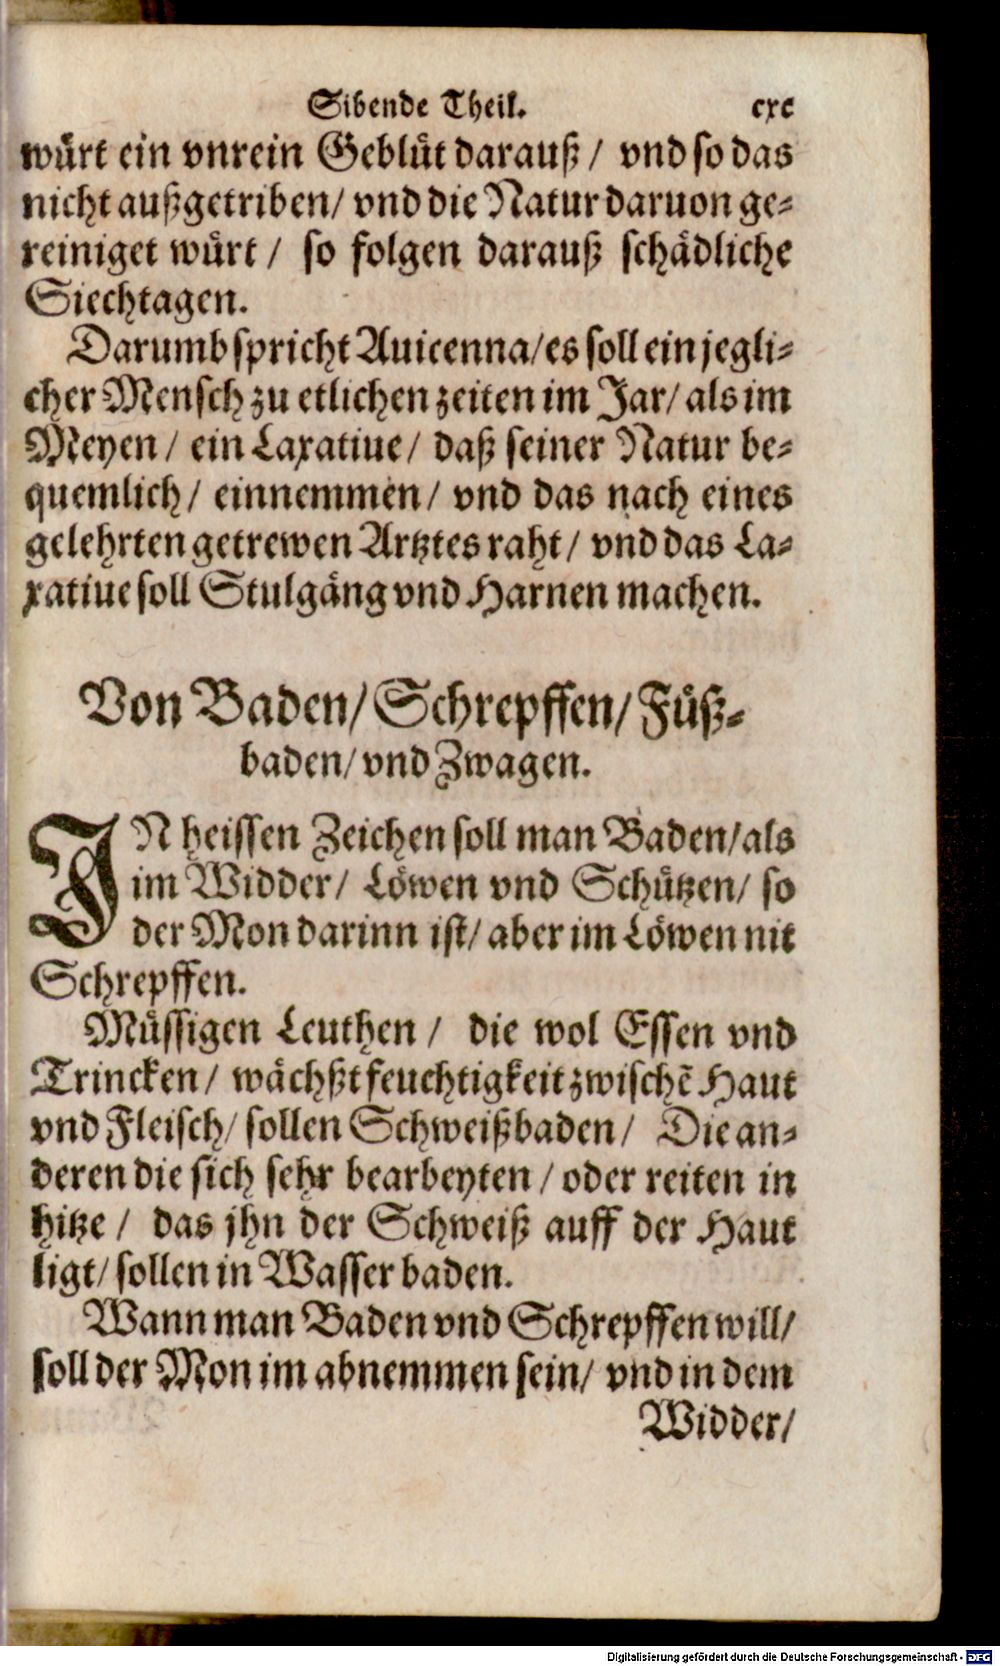 Sibende Theil. cxc
würt ein vnrein Geblüt darauß / vnd so das
nicht außgetriben / vnd die Natur daruon ge-
reiniget würt / so folgen darauß schädliche
Siechtagen.
Darumb spricht Auicenna / es soll ein jegli-
cher Mensch zu etlichen zeiten im Jar / als im
Meyen / ein Laxatiue / daß seiner Natur be-
quemlich / einnemmen / vnd das nach eines
gelehrten getrewen Artztes raht / vnd das La-
xatiue soll Stulgäng vnd Harnen machen.
Von Baden / Schrepffen / Füß-
baden / vnd Zwagen.
IN heissen Zeichen soll man Baden / als
im Widder / Löwen vnd Schützen / so
der Mon darinn ist / aber im Löwen nit
Schrepffen.
Müssigen Leuthen / die wol Essen vnd
Trincken / wächßt feuchtigkeit zwischẽ Haut
vnd Fleisch / sollen Schweißbaden / Die an-
deren die sich sehr bearbeyten / oder reiten in
hitze / das jhn der Schweiß auff der Haut
ligt / sollen in Wasser baden.
Wann man Baden vnd Schrepffen will /
soll der Mon im abnemmen sein / vnd in dem
Widder /
Digitalisierung gefördert durch die Deutsche Forschungsgemeinschaft - DFG